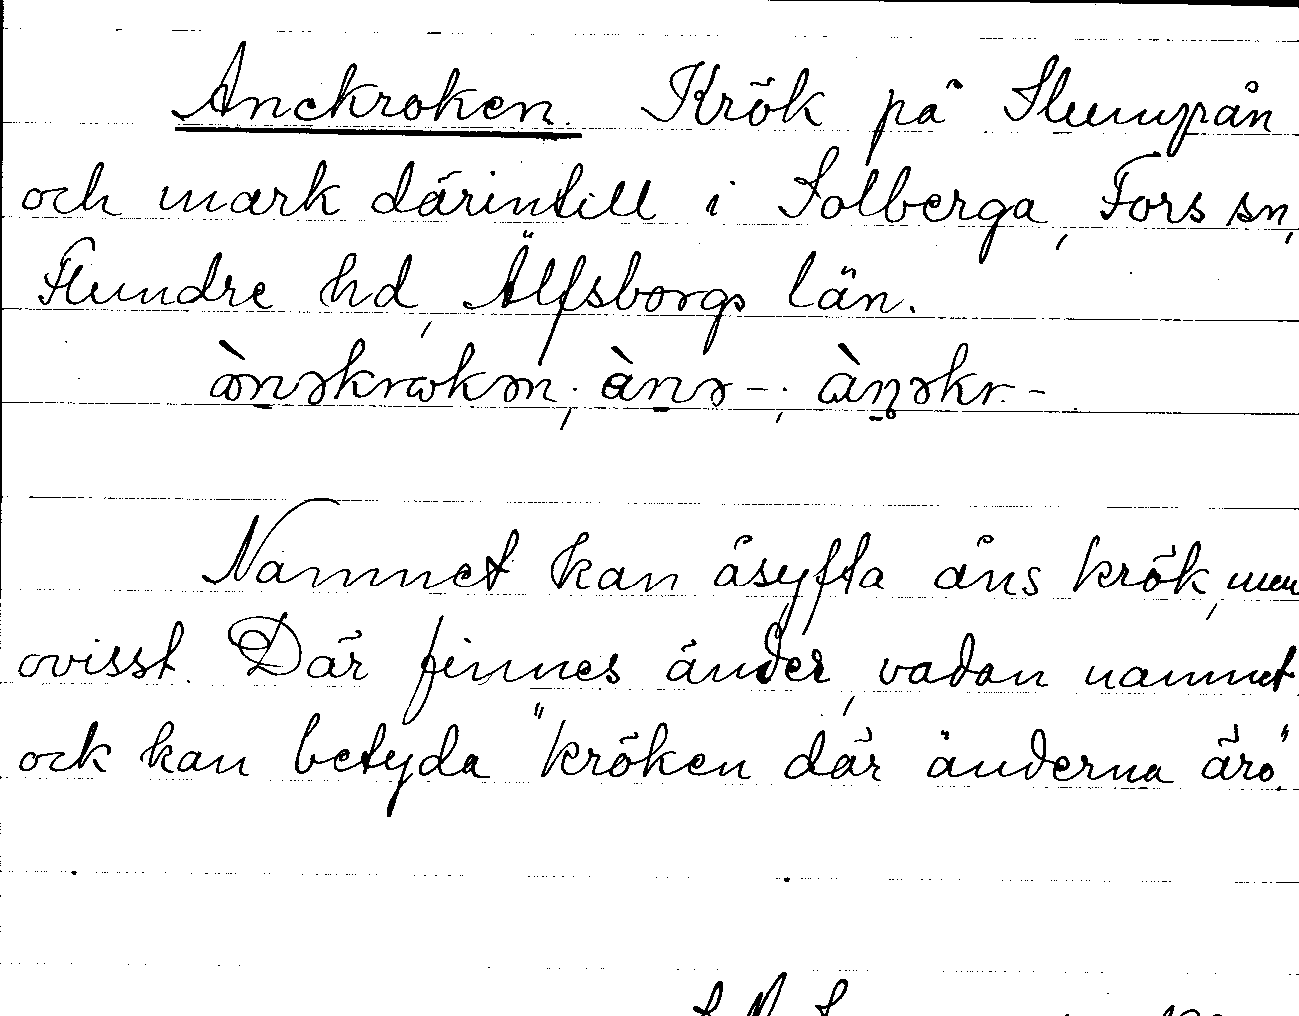 Anekroken. Krök på Slumpån
och mark därintill i Solberga, Fors sn,
Flundre hd, Älfsborgs län.
Namnet kan åsyfta åns krök, men
ovisst. Där finnes änder, vadan namnet
ock kan betyda "kröken där änderna äro."